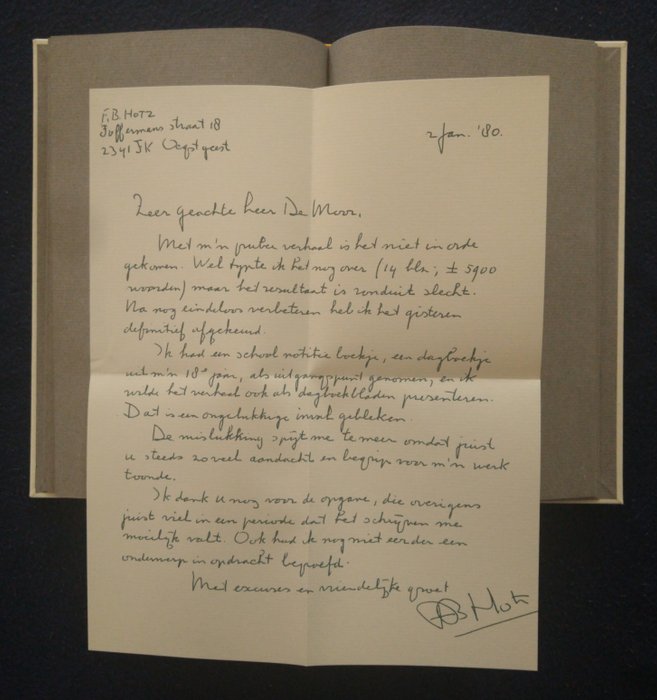 F.B. HOTZ
Joffermans straat 18
2341 JK Oegstgeest
2 Jan. '80.
Zeer geachte heer De Moor,
Met m'n puber verhaal is het niet in orde
gekomen. Wel typte ik het nog over (14 blz.; ± 5900
woorden) maar het resultaat is ronduit slecht.
Na nog eindeloos verbeteren heb ik het gisteren
definitief afgekeurd.
Ik had een school notitie boekje, een dagboekje
uit m'n 18e jaar, als uitgangspunt genomen, en ik
wilde het verhaal ook als dagboekbladen presenteren.
Dat is een ongelukkige inval gebleken.
De mislukking spijt me te meer omdat juist
u steeds zoveel aandacht en begrip voor m'n werk
toonde.
Ik dank u nog voor de opgave, die overigens
juist viel in een periode dat het schrijven me
moeilijk valt. Ook had ik nog niet eerder een
onderwerp in opdracht beproefd.
Met excuses en vriendelijke groet
FB Hotz